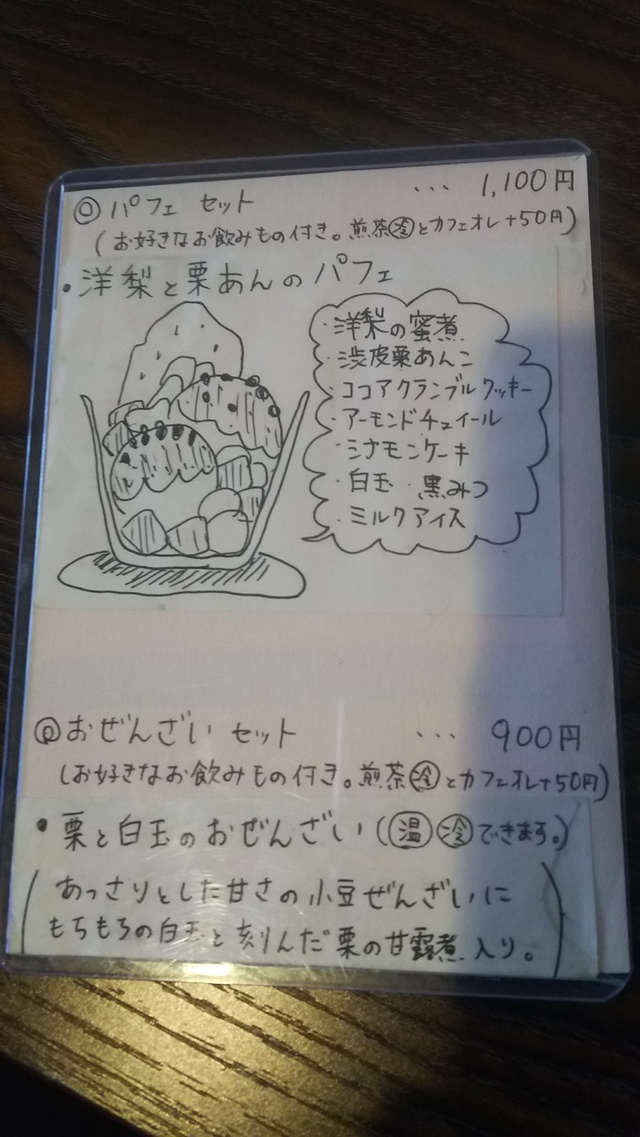 ◎パフェ セット ... 1,100円
(お好きなお飲みもの付き。煎茶㊗とカフェオレ+50円)
・洋梨と栗あんのパフェ
・洋梨の蜜煮
・渋皮栗あんこ
・ココアクランブルクッキー
・アーモンドチュイール
・シナモンケーキ
・白玉 ・黒みつ
・ミルクアイス
◎おぜんざい セット ... 900円
(お好きなお飲みもの付き。煎茶冷とカフェオレ+50円)
・栗と白玉のおぜんざい(温冷できます。)
(あっさりとした甘さの小豆ぜんざいに
もちもちの白玉と刻んだ栗の甘露煮入り。)